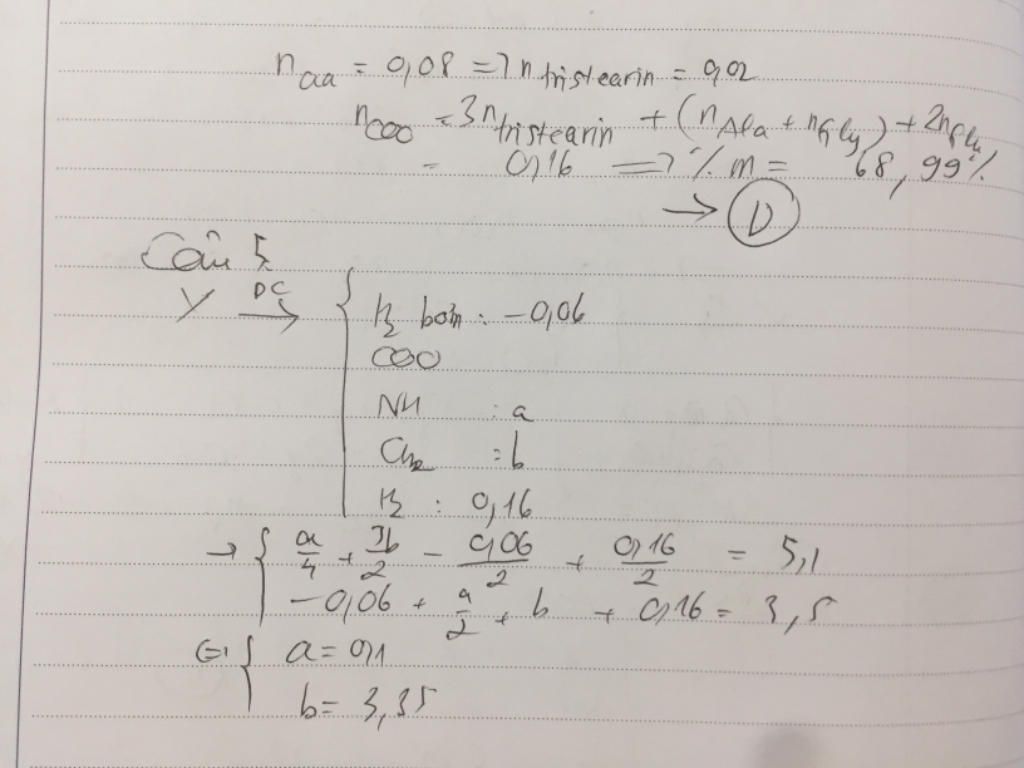 n aa = 0,08 => n tristearin = 0,02
n COO = 3n tristearin + (n Ala + n Gly) + 2n Glu
= 0,16 => % m = 68,99%
→ D
Câu 5
Y ĐC →
H2 bơm : -0,06
COO
NH : a
CH2 : b
H2 : 0,16
→ { a/4 + 3b/2 - 0,06/2 + 0,16/2 = 5,1
-0,06 + a/2 + b + 0,16 = 3,5
<=> { a = 0,1
b = 3,35